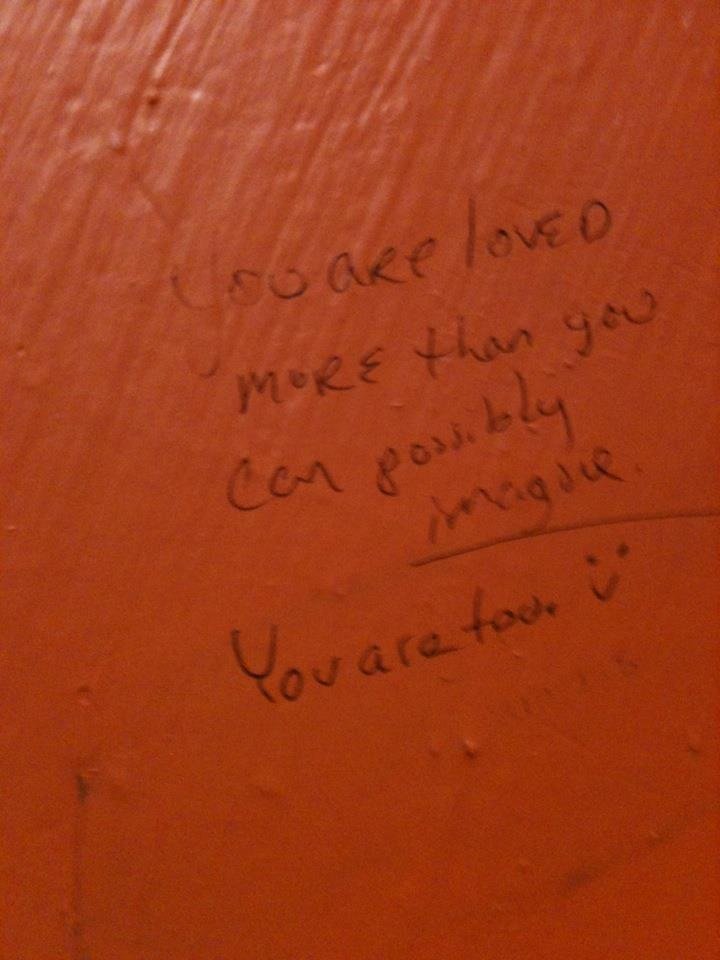 You are loved
more than you
can possibly
imagine.
You are too. :)